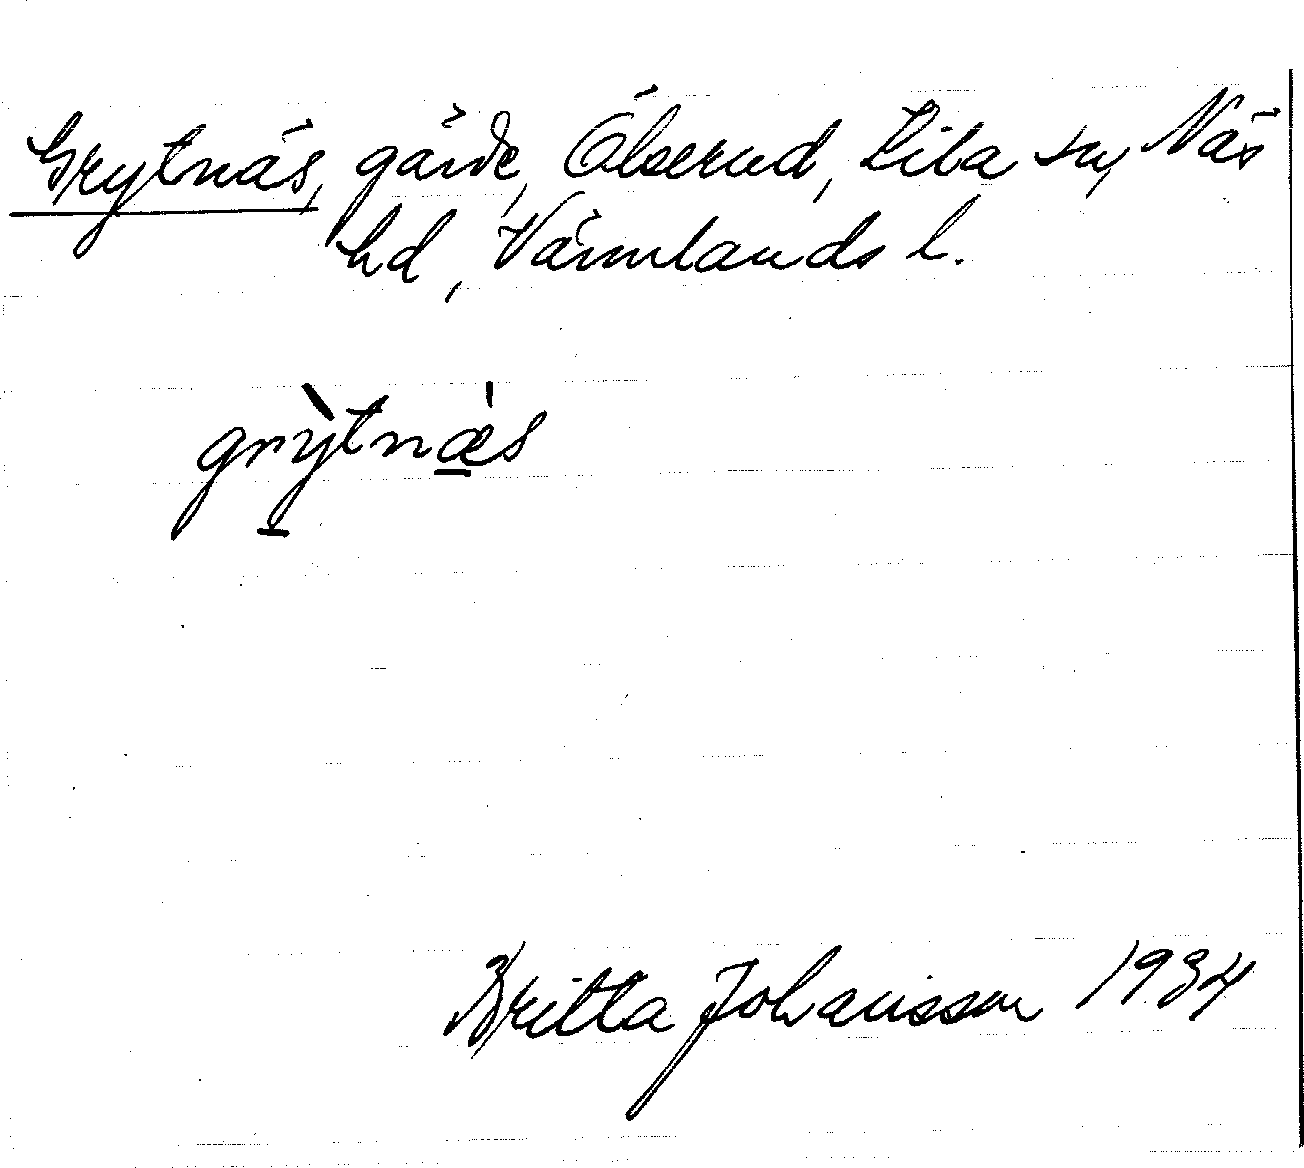 Grytnäs, gärde, Ölserud, Kila sn, Näs
hd, Värmlands l.
grỳtnæ̀s
Britta Johansson 1934